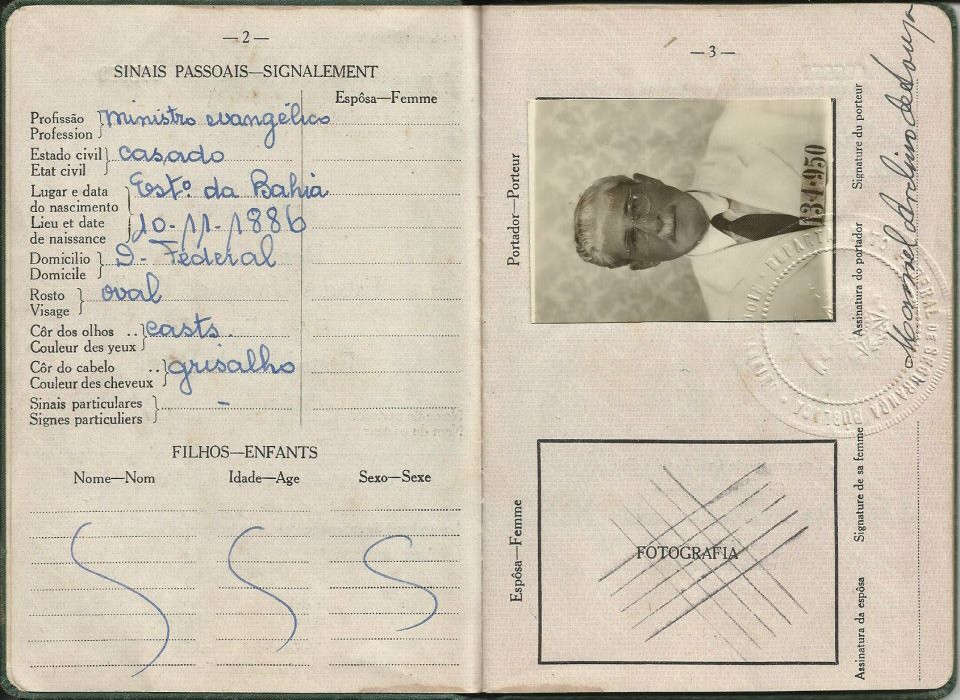 —2—
SINAIS PASSOAIS—SIGNALEMENT
Espôsa—Femme
Profissão
Profession
Ministro evangélico
Estado civil
Etat civil
casado
Lugar e data
do nascimento
Estº. da Bahia
Lieu et date
de naissance
10-11-1886
Domicilio
Domicile
D- Federal
Rosto
Visage
oval
Côr dos olhos ..
Couleur des yeux
casts.
Côr do cabelo ..
Couleur des cheveux
grisalho
Sinais particulares
Signes particuliers
-
FILHOS—ENFANTS
Nome—Nom Idade—Age Sexo—Sexe
—3—
Portador—Porteur
134.950
Assinatura do portador Signature du porteur
Manuel Avelino de Souza
Espôsa—Femme
FOTOGRAFIA
Assinatura da espôsa Signature de sa femme